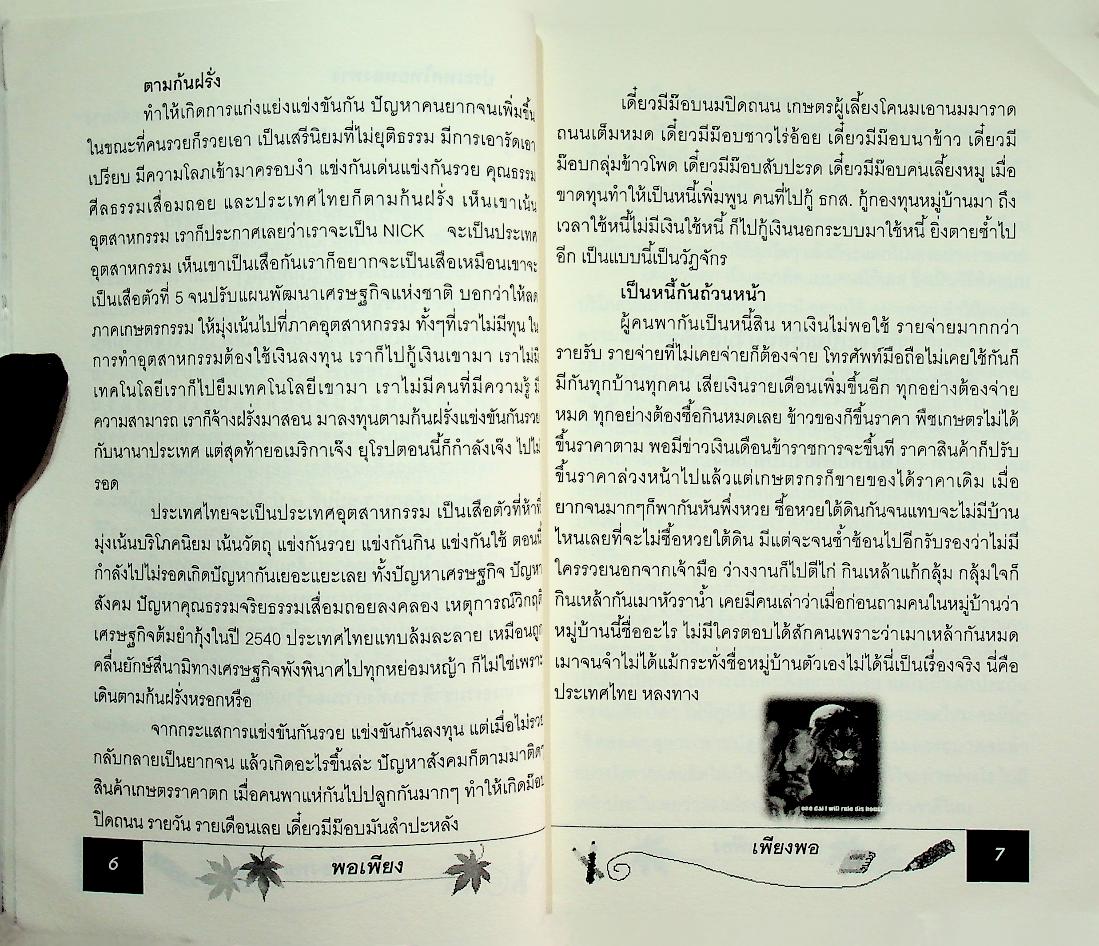 ตามก้นฝรั่ง
ทำให้เกิดการแก่งแย่งแข่งขันกัน ปัญหาคนยากจนเพิ่มขึ้น
ในขณะที่คนรวยก็รวยเอา เป็นเสรีนิยมที่ไม่ยุติธรรม มีการเอารัดเอา
เปรียบ มีความโลภเข้ามาครอบงำ แข่งกันเด่นแข่งกันรวย คุณธรรม
ศีลธรรมเสื่อมถอย และประเทศไทยก็ตามก้นฝรั่ง เห็นเขาเน้น
อุตสาหกรรม เราก็ประกาศเลยว่าเราจะเป็น NICK จะเป็นประเทศ
อุตสาหกรรม เห็นเขาเป็นเสือกันเราก็อยากจะเป็นเสือเหมือนเขาจะ
เป็นเสือตัวที่ 5 จนปรับแผนพัฒนาเศรษฐกิจแห่งชาติ บอกว่าให้ลด
ภาคเกษตรกรรม ให้มุ่งเน้นไปที่ภาคอุตสาหกรรม ทั้งๆที่เราไม่มีทุน ใน
การทำอุตสาหกรรมต้องใช้เงินลงทุน เราก็ไปกู้เงินเขามา เราไม่มี
เทคโนโลยีเราก็ไปยืมเทคโนโลยีเขามา เราไม่มีคนที่มีความรู้ มี
ความสามารถ เราก็จ้างฝรั่งมาสอน มาลงทุนตามก้นฝรั่งแข่งขันกันรวย
กับนานาประเทศ แต่สุดท้ายอเมริกาเจ๊ง ยุโรปตอนนี้ก็กำลังเจ๊ง ไปไม่
รอด
ประเทศไทยจะเป็นประเทศอุตสาหกรรม เป็นเสือตัวที่ห้าที่
มุ่งเน้นบริโภคนิยม เน้นวัตถุ แข่งกันรวย แข่งกันกิน แข่งกันใช้ ตอนนี้
กำลังไปไม่รอดเกิดปัญหากันเยอะแยะเลย ทั้งปัญหาเศรษฐกิจ ปัญหา
สังคม ปัญหาคุณธรรมจริยธรรมเสื่อมถอยลงคลอง เหตุการณ์วิกฤติ
เศรษฐกิจต้มยำกุ้งในปี 2540 ประเทศไทยแทบล้มละลาย เหมือนถูก
คลื่นยักษ์สึนามิทางเศรษฐกิจพังพินาศไปทุกหย่อมหญ้า ก็ไม่ใช่เพราะ
เดินตามก้นฝรั่งหรอกหรือ
จากกระแสการแข่งขันกันรวย แข่งขันกันลงทุน แต่เมื่อไม่รวย
กลับกลายเป็นยากจน แล้วเกิดอะไรขึ้นล่ะ ปัญหาสังคมก็ตามมาติดๆ
สินค้าเกษตรราคาตก เมื่อคนพาแห่กันไปปลูกกันมากๆ ทำให้เกิดม๊อบ
ปิดถนน รายวัน รายเดือนเลย เดี๋ยวมีม๊อบมันสำปะหลัง
6
พอเพียง
เดี๋ยวมีม๊อบนมปิดถนน เกษตรผู้เลี้ยงโคนมเอานมมาราด
ถนนเต็มหมด เดี๋ยวมีม๊อบชาวไร่อ้อย เดี๋ยวมีม๊อบนาข้าว เดี๋ยวมี
ม๊อบกลุ่มข้าวโพด เดี๋ยวมีม๊อบสับปะรด เดี๋ยวมีม๊อบคนเลี้ยงหมู เมื่อ
ขาดทุนทำให้เป็นหนี้เพิ่มพูน คนที่ไปกู้ ธกส. กู้กองทุนหมู่บ้านมา ถึง
เวลาใช้หนี้ไม่มีเงินใช้หนี้ ก็ไปกู้เงินนอกระบบมาใช้หนี้ ยิ่งตายซ้ำไป
อีก เป็นแบบนี้เป็นวัฏจักร
เป็นหนี้กันถ้วนหน้า
ผู้คนพากันเป็นหนี้สิน หาเงินไม่พอใช้ รายจ่ายมากกว่า
รายรับ รายจ่ายที่ไม่เคยจ่ายก็ต้องจ่าย โทรศัพท์มือถือไม่เคยใช้กันก็
มีกันทุกบ้านทุกคน เสียเงินรายเดือนเพิ่มขึ้นอีก ทุกอย่างต้องจ่าย
หมด ทุกอย่างต้องซื้อกินหมดเลย ข้าวของก็ขึ้นราคา พืชเกษตรไม่ได้
ขึ้นราคาตาม พอมีข่าวเงินเดือนข้าราชการจะขึ้นที ราคาสินค้าก็ปรับ
ขึ้นราคาล่วงหน้าไปแล้วแต่เกษตรกรก็ขายของได้ราคาเดิม เมื่อ
ยากจนมากๆก็พากันหันพึ่งหวย ซื้อหวยใต้ดินกันจนแทบจะไม่มีบ้าน
ไหนเลยที่จะไม่ซื้อหวยใต้ดิน มีแต่จะจนซ้ำซ้อนไปอีกรับรองว่าไม่มี
ใครรวยนอกจากเจ้ามือ ว่างงานก็ไปตีไก่ กินเหล้าแก้กลุ้ม กลุ้มใจก็
กินเหล้ากันเมาหัวราน้ำ เคยมีคนเล่าว่าเมื่อก่อนถามคนในหมู่บ้านว่า
หมู่บ้านนี้ชื่ออะไร ไม่มีใครตอบได้สักคนเพราะว่าเมาเหล้ากันหมด
เมาจนจำไม่ได้แม้กระทั่งชื่อหมู่บ้านตัวเองไม่ได้นี่เป็นเรื่องจริง นี่คือ
ประเทศไทย หลงทาง
one dai I will rule dis house
เพียงพอ
7